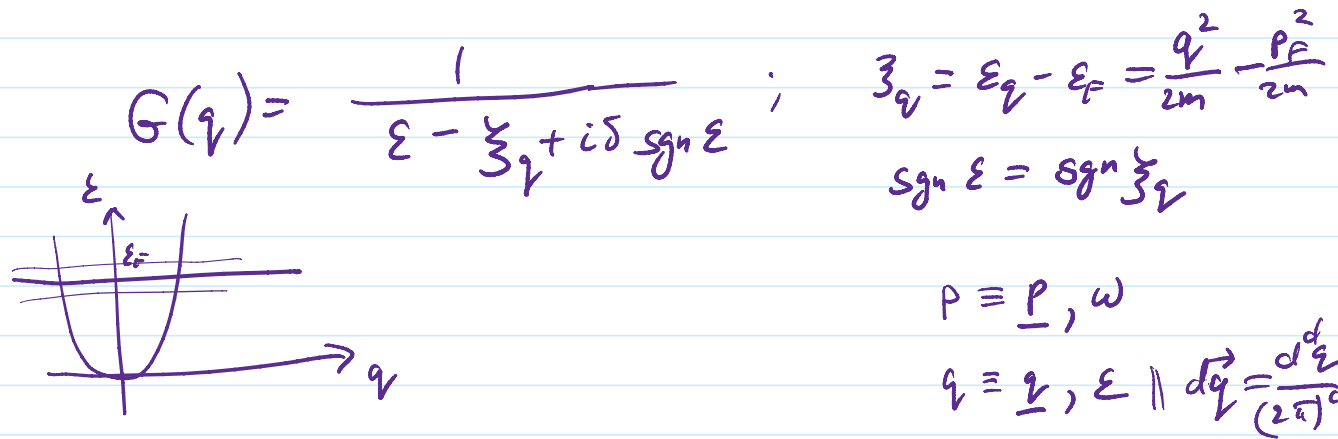 G(q) = 1 / (ε - ξ_q + iδ sgn ε) ; ξ_q = ε_q - ε_F = q²/2m - p_F²/2m
sgn ε = sgn ξ_q
ε
ε_F
q
p ≡ p, ω
q ≡ q, ε || dq⃗ = d^d q / (2π)^d